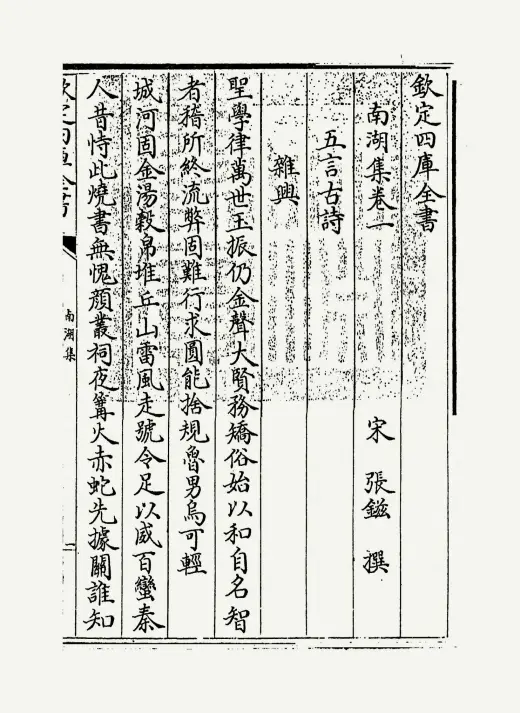 欽定四庫全書
南湖集卷一
宋 張鎡 撰
五言古詩
雜興
聖學律萬世玉振仍金聲大賢務矯俗始以和自名智
者稽所終流弊固難行求圓能捨規魯男烏可輕
城河固金湯榖帛堆丘山雷風走號令足以威百蠻秦
人昔恃此燒書無愧顔叢祠夜篝火赤蛇先據關誰知
欽定四庫全書
南湖集
一